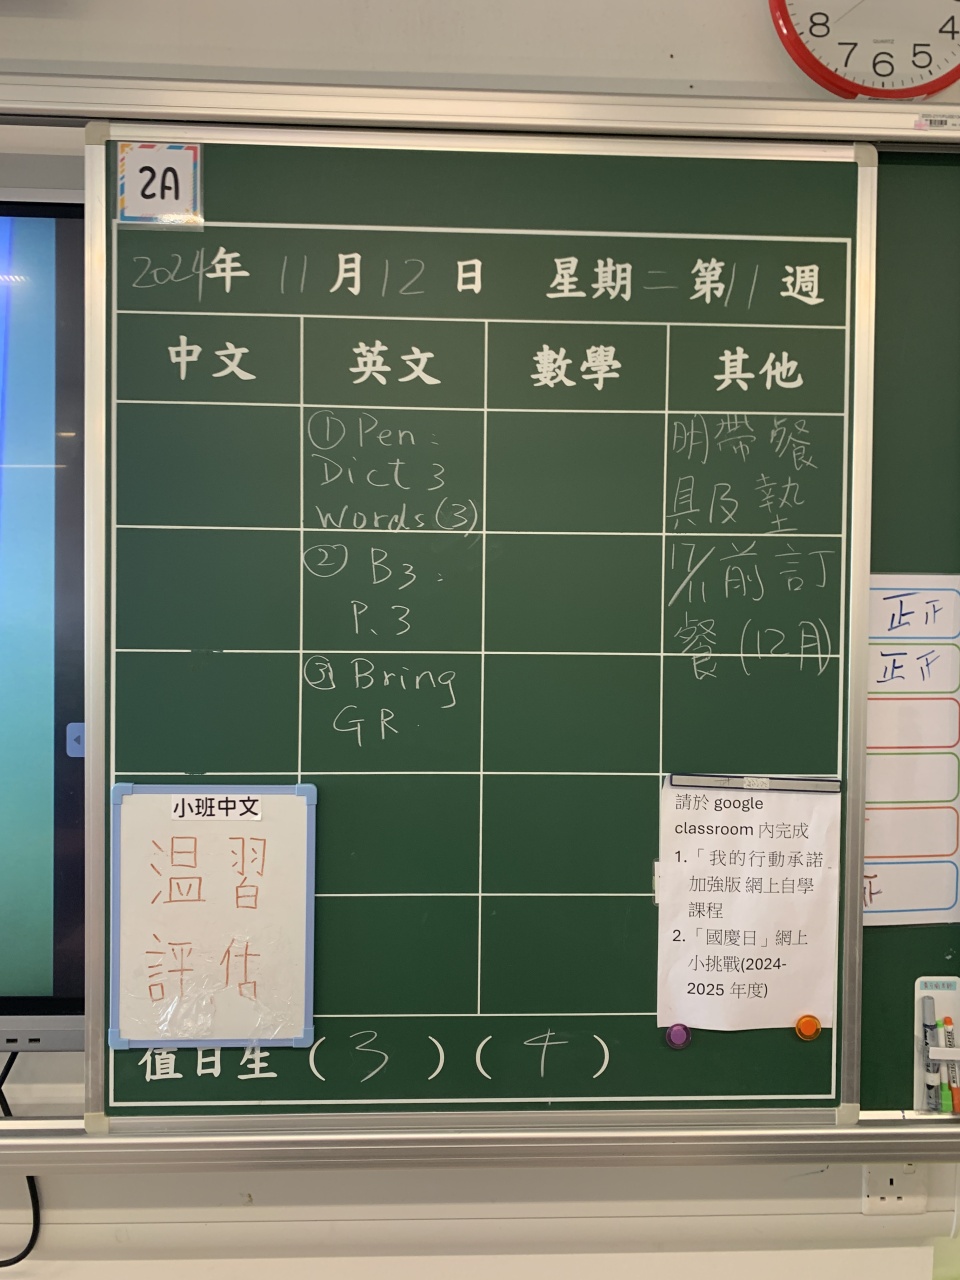 8 7 6 5 4
QUARTZ
2A
2024年 11月12日 星期二 第11週
中文 英文 數學 其他
① Pen:
Dict 3
Words (3)
② B3:
P.3
③ Bring
GR.
明帶餐
具及墊
17/11前訂
餐(12月)
小班中文
溫習
評估
請於 google
classroom 內完成
1.「我的行動承諾
加強版 網上自學
課程
2.「國慶日」網上
小挑戰(2024-
2025 年度)
值日生 (3)(4)
正正
正正